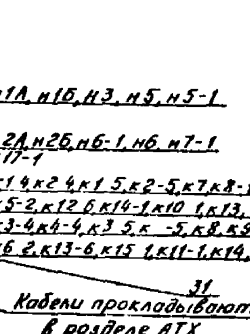 н1А, н1Б, н3, н5, н5-1
2А, н2Б, н6-1, н6, н7-1
17-1
к1 4, к2 4, к1 5, к2-5, к7, к8-
5-2, к12 6, к14-1, к10 1, к13,
3-4, к4-4, к3 5, к -5, к8, к9
к6 2, к13-6, к15 1, к11-1, к14,
31
Кабели прокладывают
в разделе АТХ